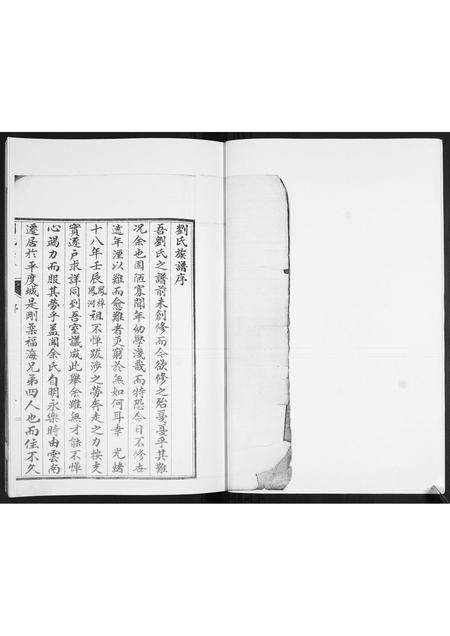 劉氏族譜序
吾劉氏之譜前未創修而今欲修之殆憂憂乎其難
况余也固陋寡聞年幼學淺哉而特恐今日不修每
遠年湮以難而愈難者更窮於無如何耳幸 光緒
十八年壬辰鳳梓鳳河祖不憚跋涉之勞奔走之力按支
實逐户求詳同到吾室議成此舉余雖無才能不憚
心竭力而服其勞乎盖聞余氏自明永樂時由雲南
遷居於平度城是剛葉福海兄弟四人也而住不久